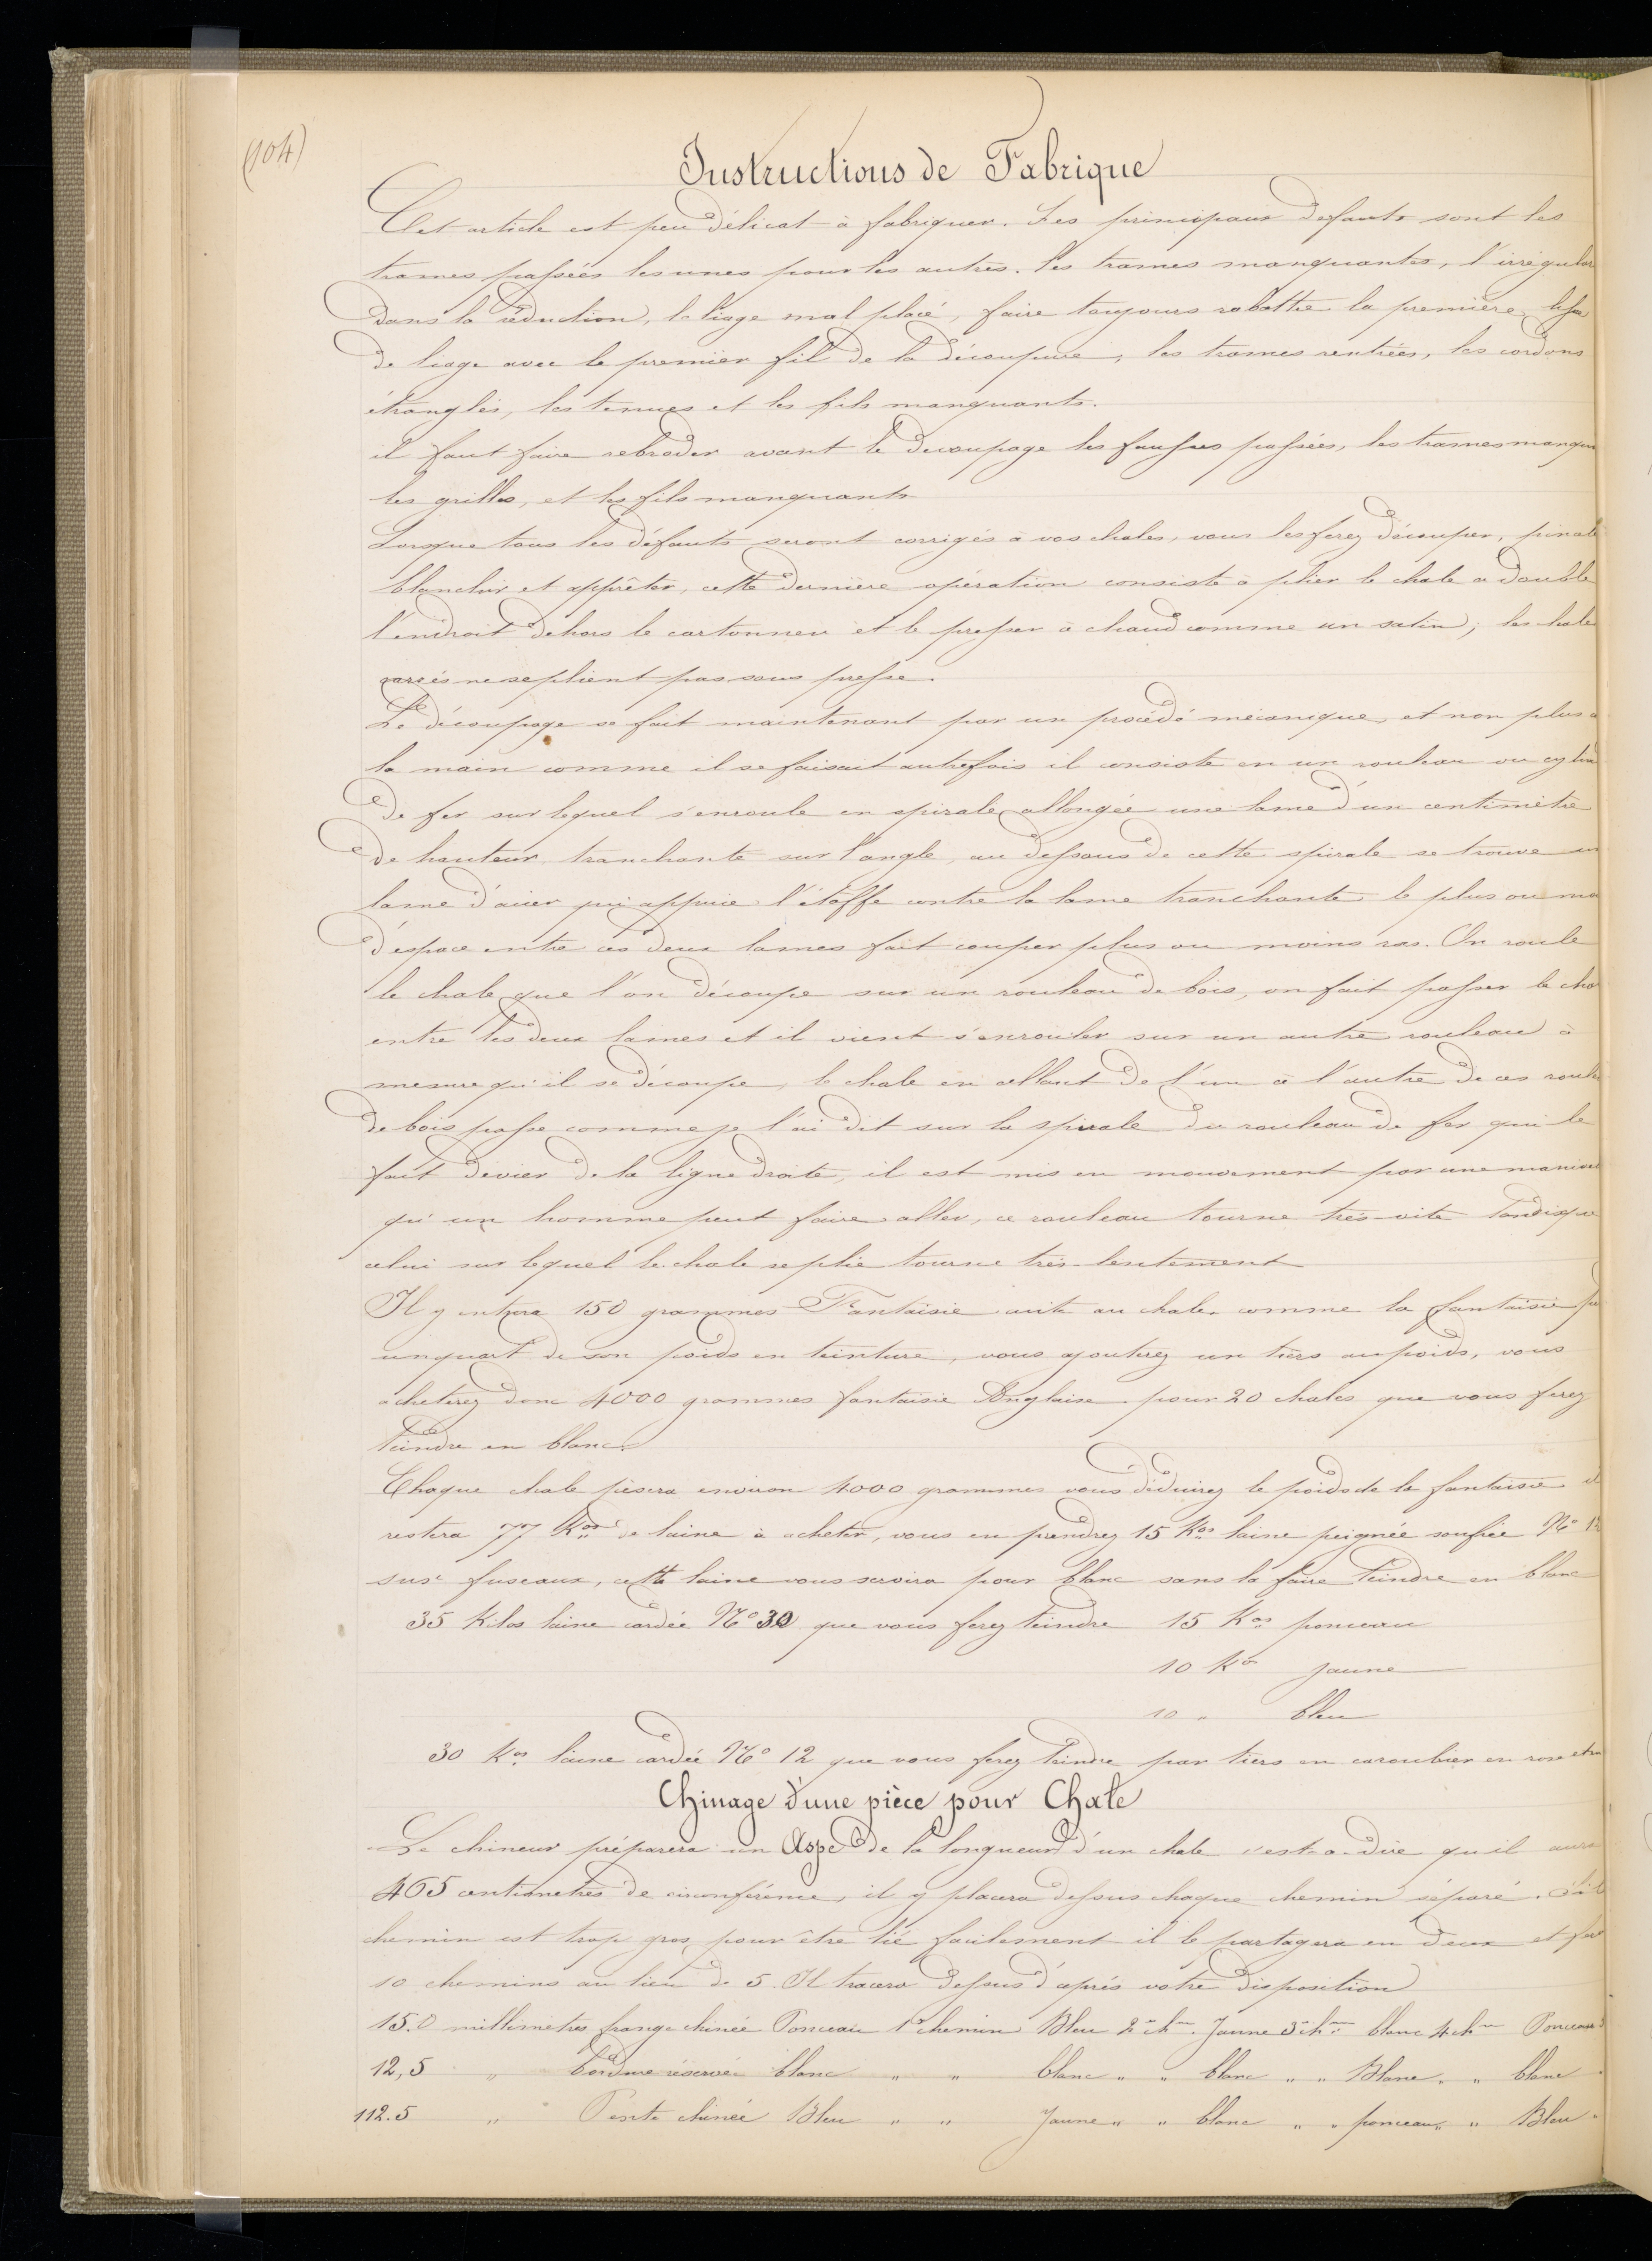 (104)
Instructions de Fabrique
Cet article est peu délicat à fabriquer. Les principaux defauts sont les
trames passées les unes pour les autres. les trames manquantes, l'irrégular
dans la réduction, le liage mal placé, faire toujours rabattre la première lisse
de liage avec le premier fil de la découpure, les trames rentrées, les cordons
étranglés, les tenues et les fils manquants.
il faut faire rebroder avant le decoupage les fausses passées, les trames manqu
les grilles, et les fils manquants
Lorsque tous les défauts seront corrigés à vos chales, vous les ferez découper, pincet
blanchir et apprêter, cette dernière opération consiste à plier le chale a double
l'endroit dehors le cartonner et le presser à chaud comme un satin, les chales
carrés ne se plient pas sous presse.
Le découpage se fait maintenant par un procédé mécanique, et non plus a
la main comme il se faisait autrefois il consiste en un rouleau ou cylin
de fer sur lequel s'enroule en spirale allongée une lame d'un centimètre
de hauteur tranchante sur l'angle, au dessous de cette spirale se trouve un
lame d'acier qui appuie l'étoffe contre la lame tranchante le plus ou mo
d'espace entre ces deux lames fait couper plus ou moins ras. On roule
le chale que l'on découpe sur un rouleau de bois, on fait passer le cha
entre les deux lames et il vient s'enrouler sur un autre rouleau à
mesure qu'il se découpe, le chale en allant de l'un à l'autre de ces roule
de bois passe comme je l'ai dit sur la spirale du rouleau de fer qui le
fait devier de la ligne droite, il est mis en mouvement par une manivel
qu'un homme peut faire aller, ce rouleau tourne très-vite tandisque
celui sur lequel le chale se plie tourne très-lentement
Il y entrera 150 grammes Fantaisie cuite au chale, comme la fantaisie p
un quart de son poids en teinture, vous ajouterez un tiers au poids, vous
acheterez donc 4000 grammes fantaisie Anglaise pour 20 chales que vous ferez
teindre en blanc.
Chaque chale pèsera environ 4000 grammes vous déduirez le poids de la fantaisie il
restera 77 Kos de laine à acheter, vous en prendrez 15 Kos laine peignée soufrée No 12
sur fuseaux, cette laine vous servira pour blanc sans la faire teindre en blanc
35 Kilos laine cardée No 30 que vous ferez teindre 15 Kos ponceau
10 Kos Jaune
10 " bleu
30 Kos laine cardée No 12 que vous ferez teindre par tiers en caroubier en rose et en
Chinage d'une pièce pour Chale
Le chineur préparera un Aspe de la longueur d'un chale c'est-a-dire qu'il aura
465 centimetres de circonférence, il y placera dessus chaque chemin séparé. Si le
chemin est trop gros pour être lié facilement il le partagera en deux et fera
10 chemins au lieu de 5. Il tracera dessus d'après votre disposition
15.0 millimetres frange chinée Ponceau 1er chemin Bleu 2e chm Jaune 3e chm blanc 4 chm Ponceau
12,5 " bordure réservée blanc " " blanc " " blanc " " Blanc " " blanc
112.5 " Pente chinée Bleu " " Jaune " " blanc " " ponceau " " Bleu "